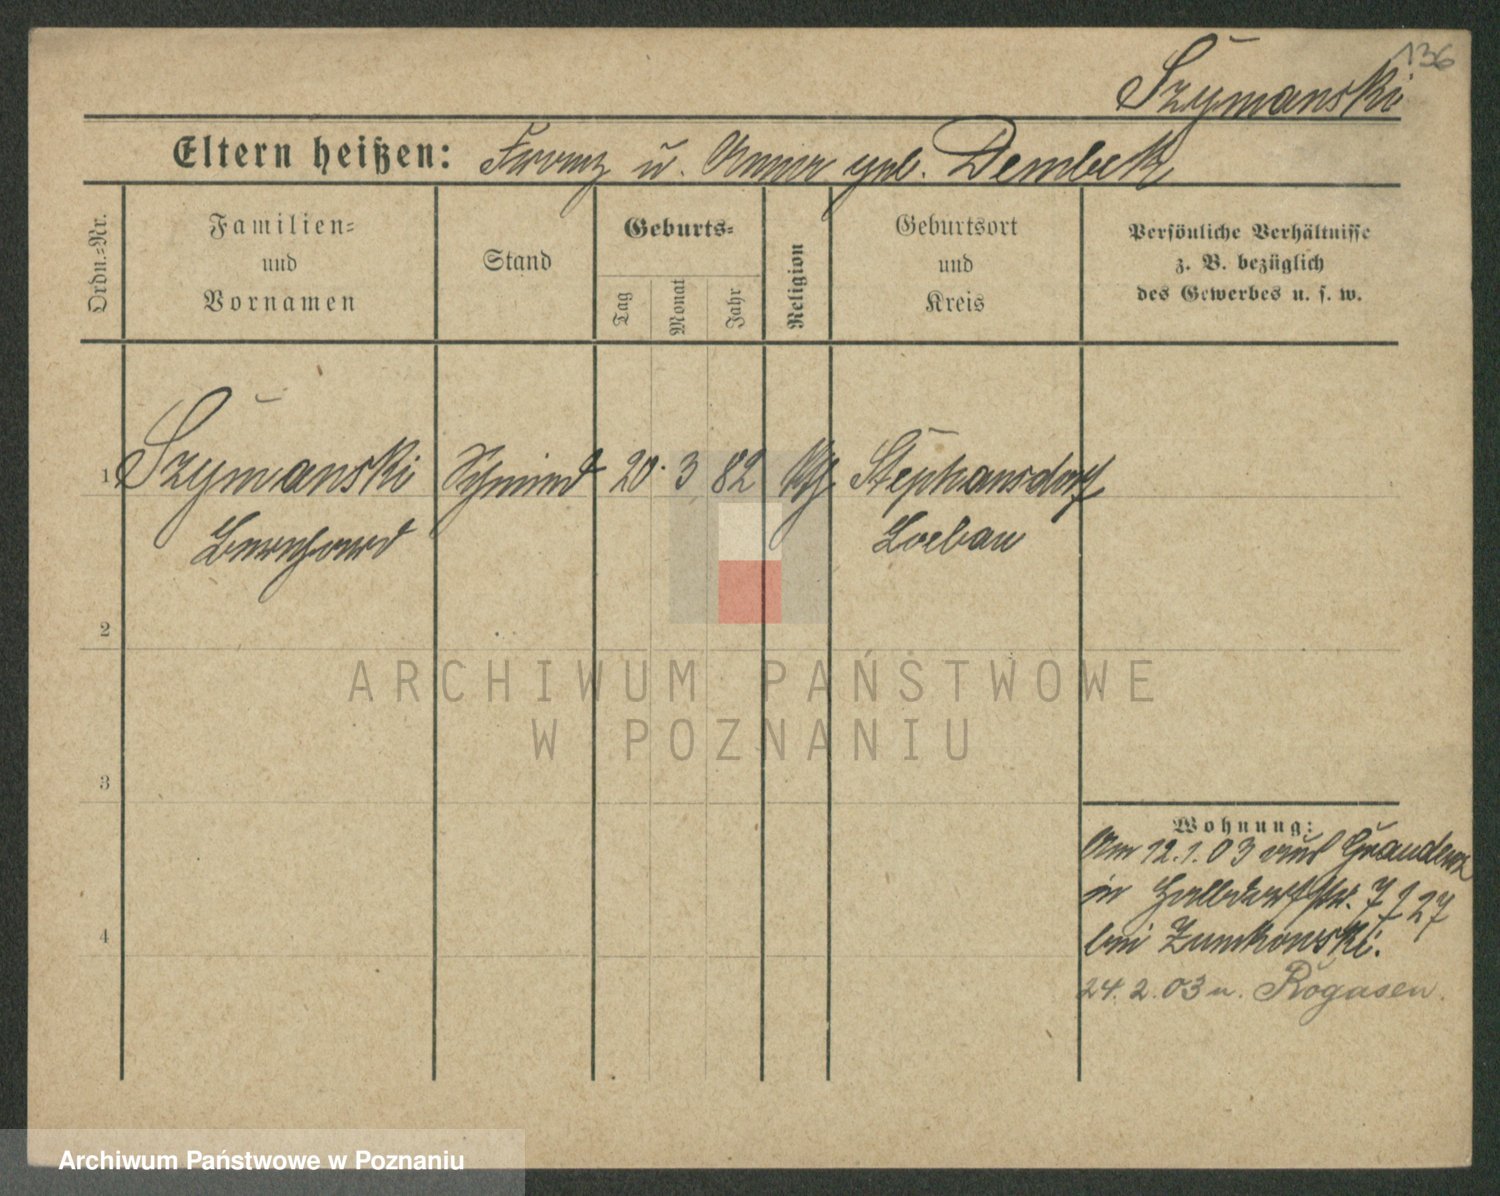 136
Szymanski
Eltern heißen: Franz u. Anna geb. Dembek
Ordn.=Nr.
Familien=
und
Vornamen
Stand
Geburts=
Tag
Monat
Jahr
Religion
Geburtsort
und
Kreis
Persönliche Verhältnisse
z. B. bezüglich
des Gewerbes u. s. w.
1 Szymanski Schmied 20. 3 82 Kth Stephansdorf
Bernhard Loebau
2
3
4
Wohnung:
Am 12.1.03 aus Graudenz
in Halldorfstr. 7 I 27
bei Zumkowski.
24.2.03 n. Rogasen.
ARCHIWUM PAŃSTWOWE
W POZNANIU
Archiwum Państwowe w Poznaniu